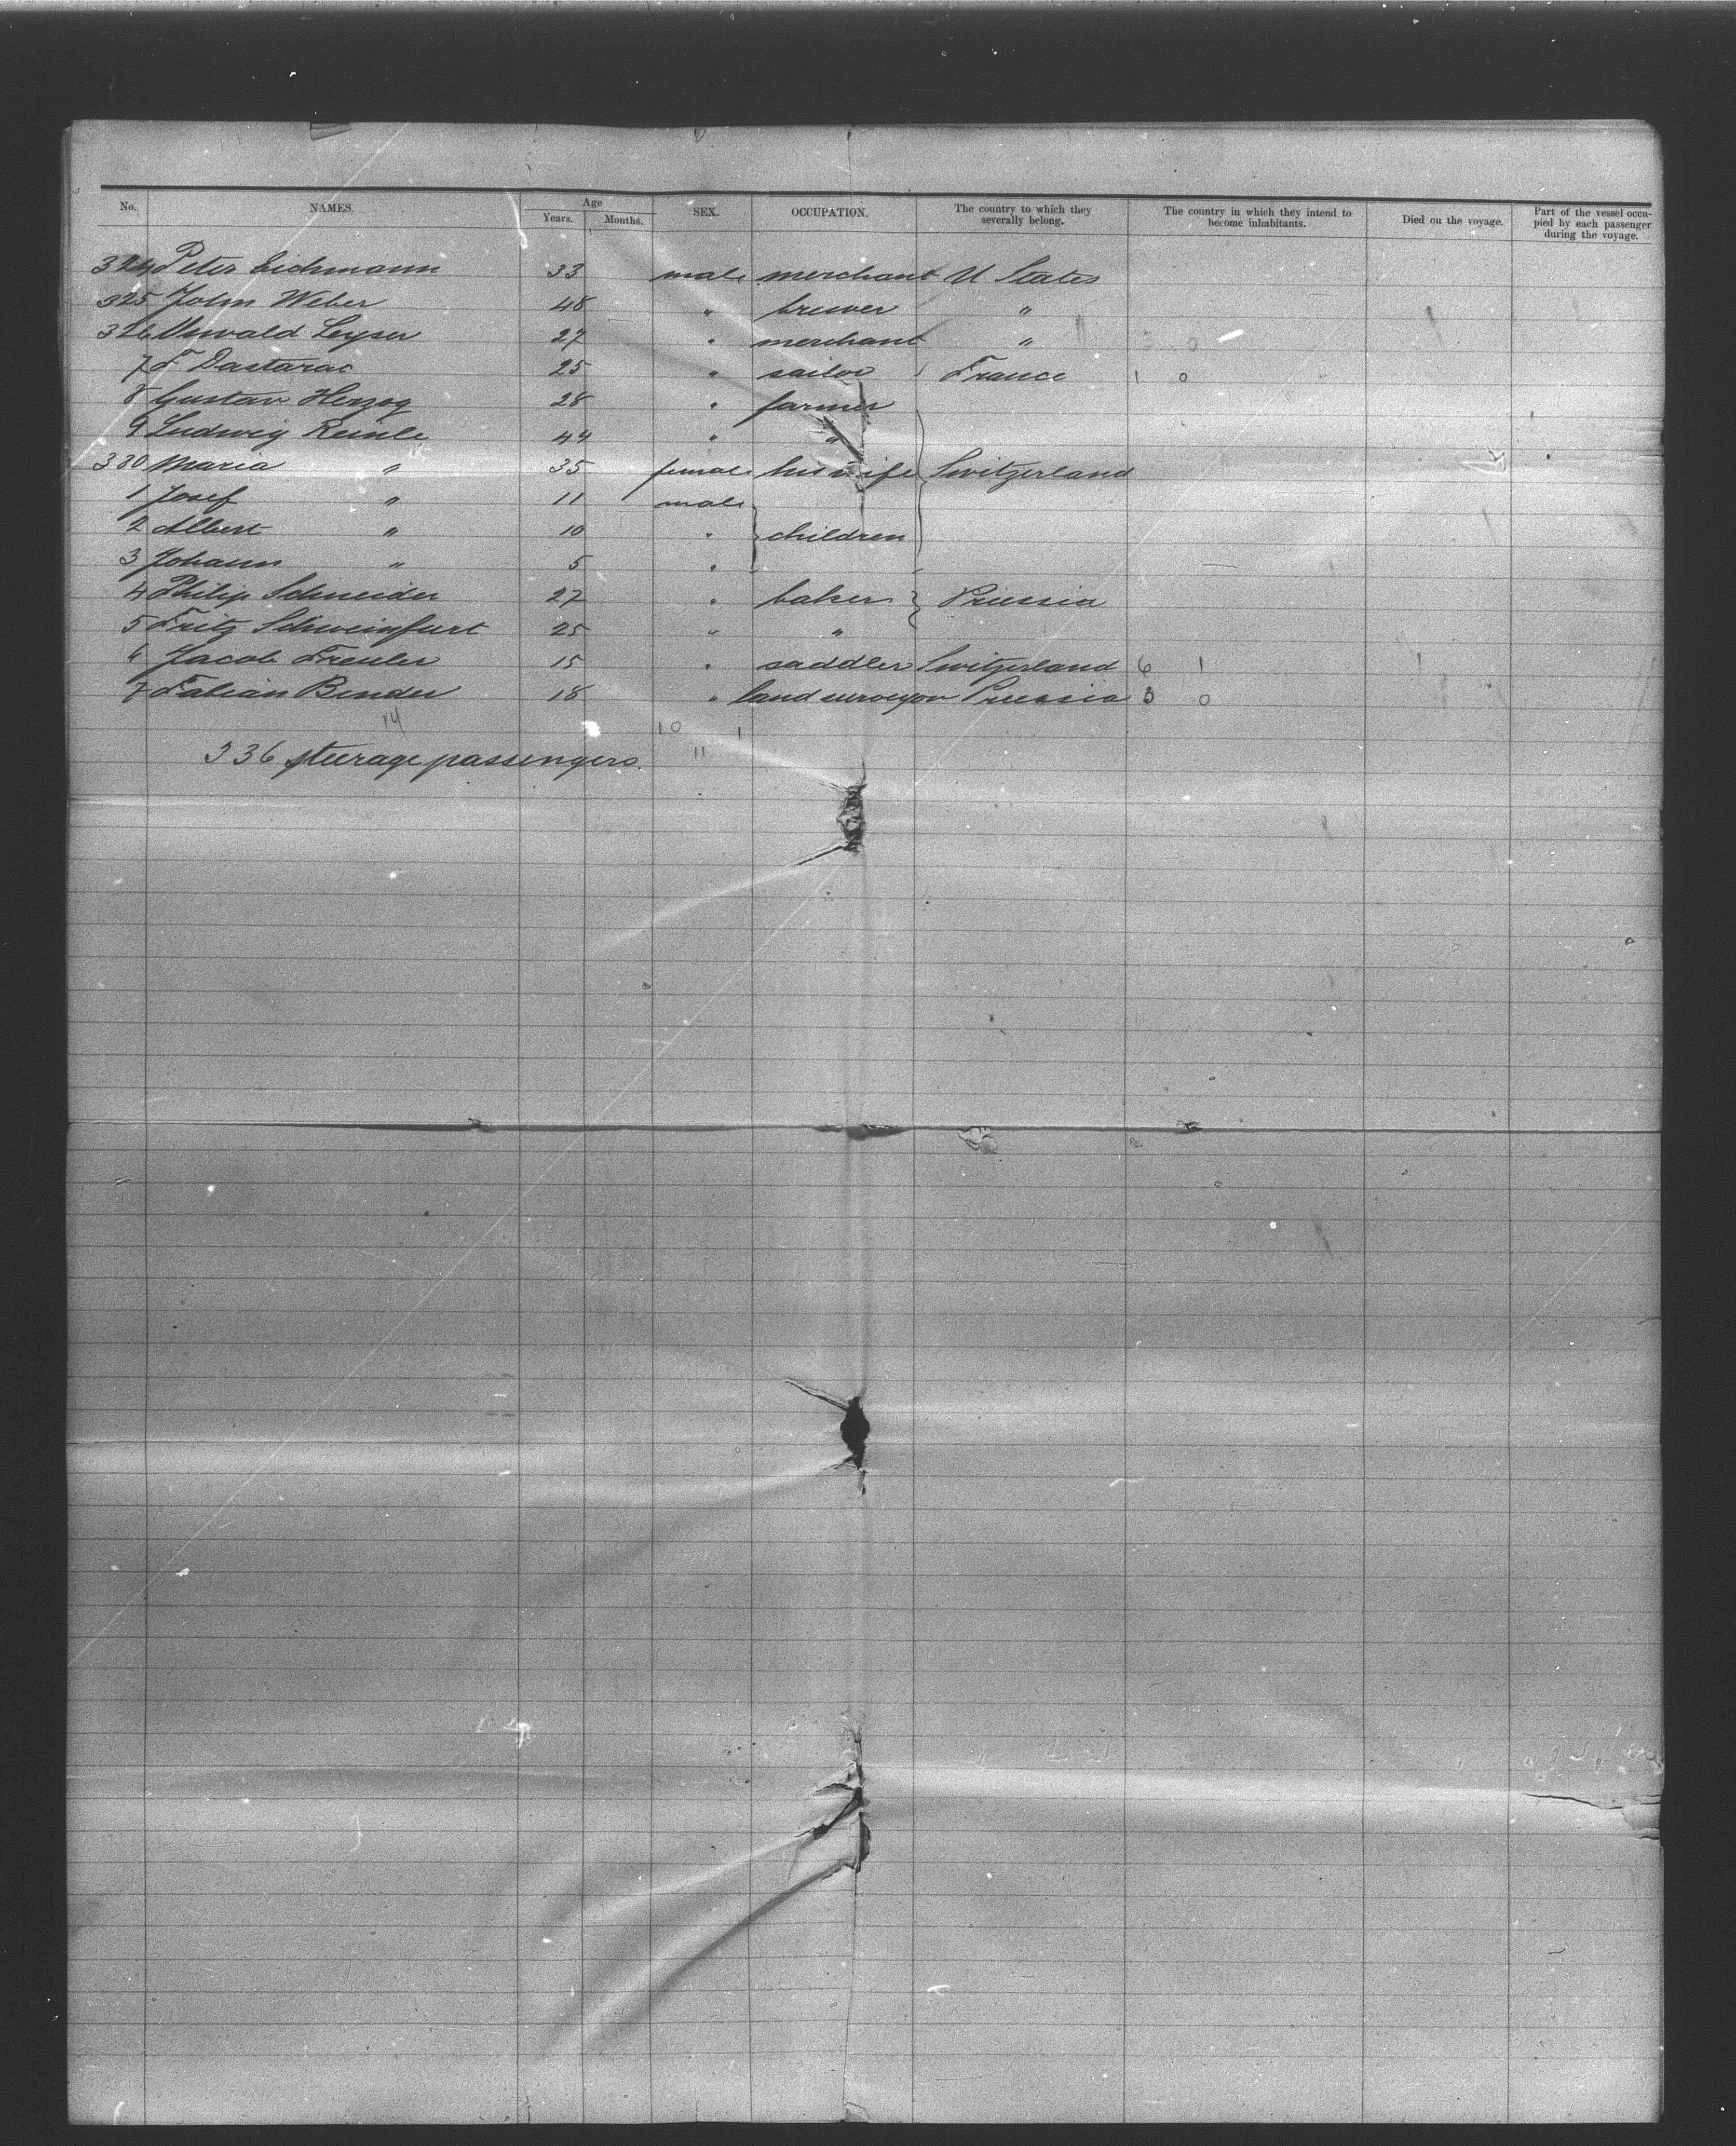 No. NAMES. Age Years. Months. SEX. OCCUPATION. The country to which they severally belong. The country in which they intend to become inhabitants. Died on the voyage. Part of the vessel occupied by each passenger during the voyage.
324 Peter Eichmann 33 male merchant U States
325 John Weber 48 " brewer "
326 Oswald Leyser 27 " merchant " 3 0
7 F Dastarac 25 " sailor France 1 0
8 Gustav Herzog 28 " farmer
9 Ludwig Reinle 44 " "
330 Maria " 35 female his wife Switzerland
1 Josef " 11 male
2 Albert " 10 " children
3 Johann " 5 "
4 Philip Schneider 27 " baker Prussia
5 Fritz Schweinfurt 25 " "
6 Jacob Freuler 15 " saddler Switzerland 6 1
7 Fabian Bender 18 " land surveyor Prussia 3 0
14 10 1
336 steerage passengers. 11